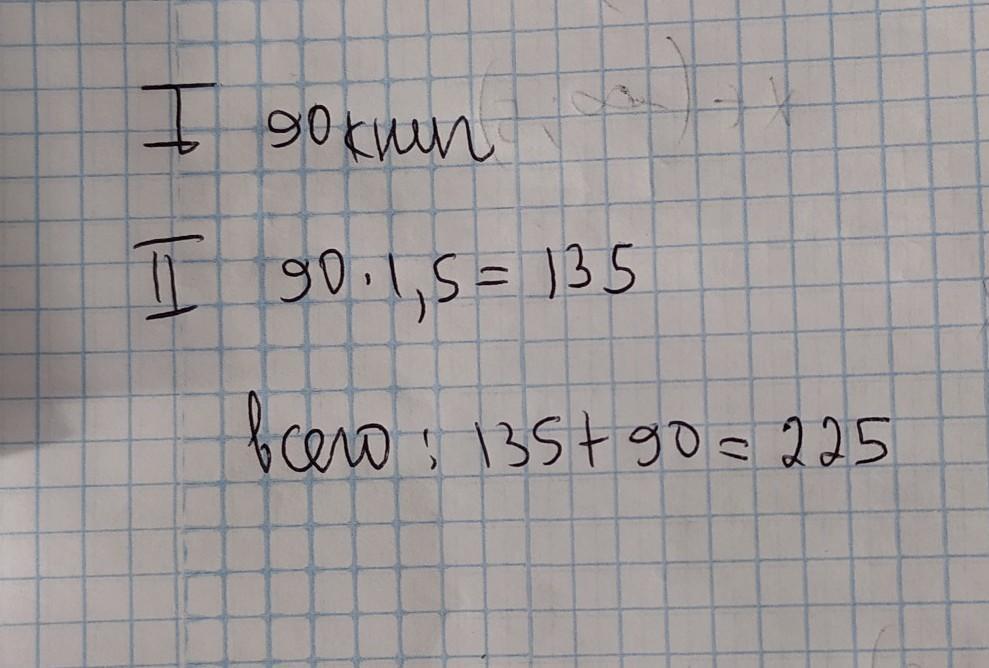 I 90 книг
II 90 · 1,5 = 135
всего : 135 + 90 = 225